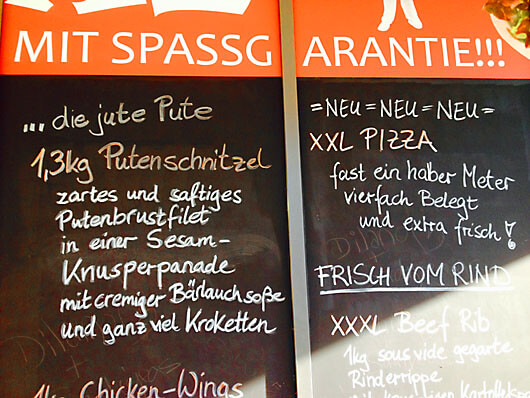 MIT SPASSG
... die jute Pute
1,3kg Putenschnitzel
zartes und saftiges
Putenbrustfilet
in einer Sesam-
Knusperpanade
mit cremiger Bärlauchsoße
und ganz viel Kroketten
1kg Chicken-Wings
ARANTIE!!!
=NEU=NEU=NEU=
XXL PIZZA
fast ein haber Meter
vierfach Belegt
und extra frisch!
FRISCH VOM RIND
XXXL Beef Rib
1kg sous vide gegarte
Rinderrippe